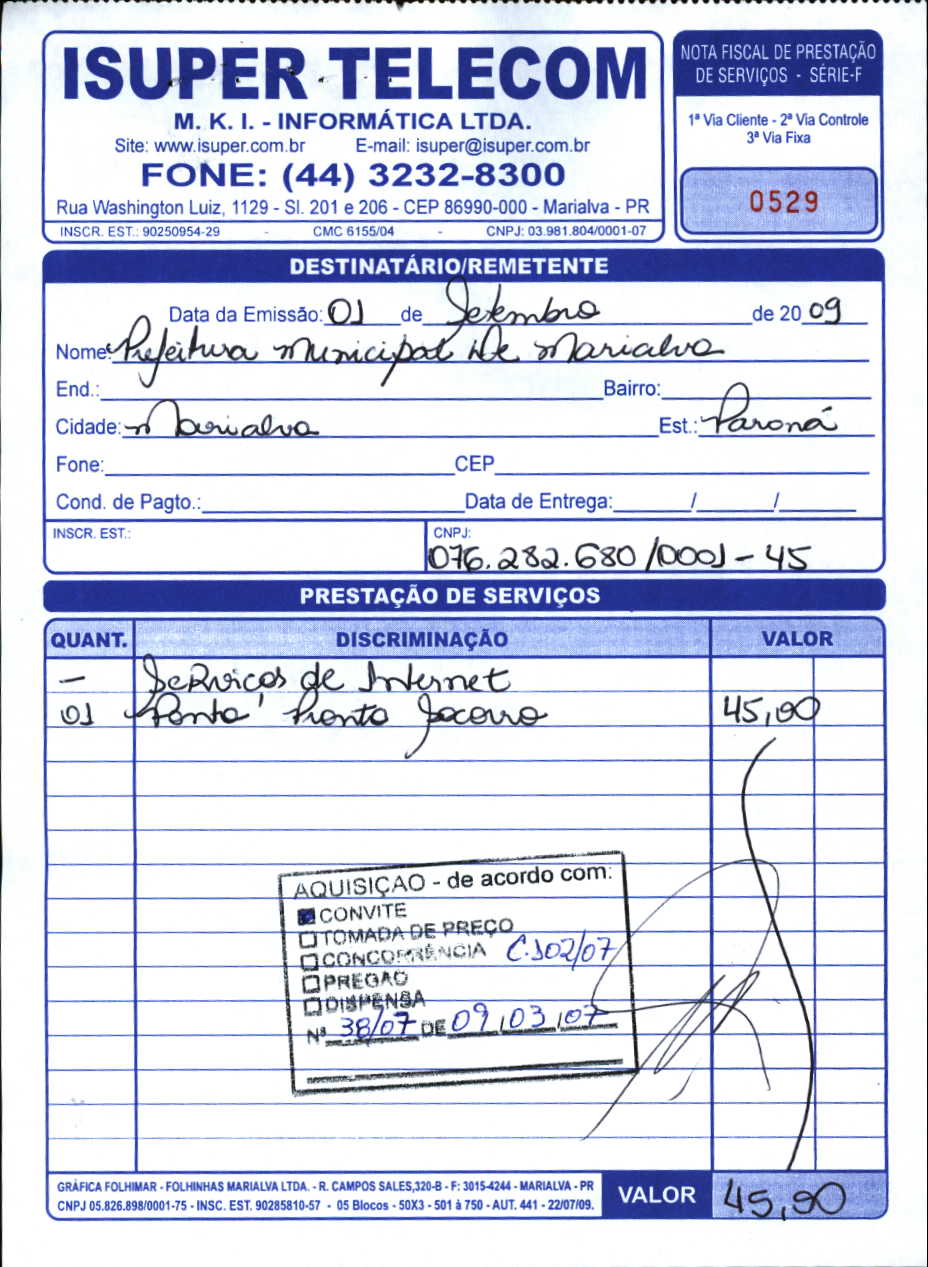 ISUPER TELECOM
M. K. I. - INFORMÁTICA LTDA.
Site: www.isuper.com.br E-mail: isuper@isuper.com.br
FONE: (44) 3232-8300
Rua Washington Luiz, 1129 - Sl. 201 e 206 - CEP 86990-000 - Marialva - PR
INSCR. EST.: 90250954-29 - CMC 6155/04 - CNPJ: 03.981.804/0001-07
NOTA FISCAL DE PRESTAÇÃO
DE SERVIÇOS - SÉRIE-F
1ª Via Cliente - 2ª Via Controle
3ª Via Fixa
0529
DESTINATÁRIO/REMETENTE
Data da Emissão: 01 de Setembro de 2009
Nome: Prefeitura Municipal De Marialva
End.: Bairro:
Cidade: Marialva Est.: Paraná
Fone: CEP
Cond. de Pagto.: Data de Entrega: / /
INSCR. EST.: CNPJ:
076.282.680/0001-45
PRESTAÇÃO DE SERVIÇOS
QUANT. DISCRIMINAÇÃO VALOR
— Serviços de Internet
01 Ponto Pronto Socorro 45,00
AQUISIÇAO - de acordo com:
CONVITE
TOMADA DE PREÇO
CONCORRÊNCIA C.102/07
PREGAO
DISPENSA
Nº 38/07 DE 09/03/07
GRÁFICA FOLHIMAR - FOLHINHAS MARIALVA LTDA. - R. CAMPOS SALES,320-B - F: 3015-4244 - MARIALVA - PR
CNPJ 05.826.898/0001-75 - INSC. EST. 90285810-57 - 05 Blocos - 50X3 - 501 à 750 - AUT. 441 - 22/07/09.
VALOR 45,00